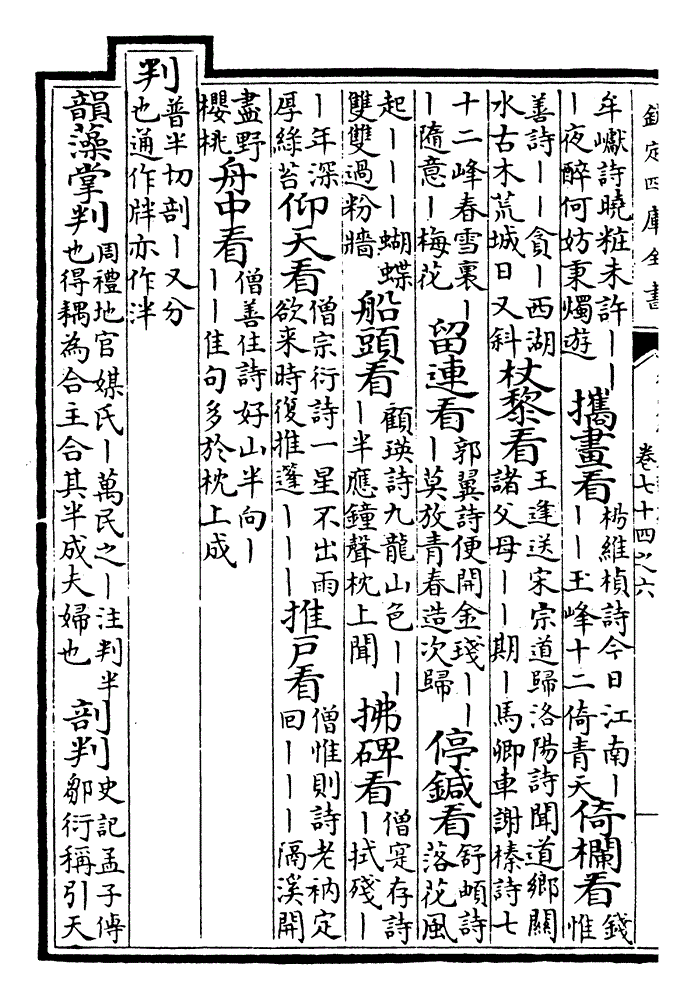 欽定四庫全書 卷七十四之六
牟巘詩曉粧未許｜｜｜夜醉何妨秉燭遊 攜畫看 楊維楨詩今日江南｜｜｜玉峰十二倚青天 倚欄看 錢惟
善詩｜｜貪｜西湖水古木荒城日又斜 杖藜看 王逢送宋宗道歸洛陽詩聞道鄉關諸父母｜｜期｜馬卿車謝榛詩七
十二峰春雪裏｜｜隨意｜梅花 留連看 郭翼詩便開金琖｜｜｜莫放青春造次歸 停鍼看 舒頔詩落花風
起｜｜｜蝴蝶雙雙過粉牆 船頭看 顧瑛詩九龍山色｜｜｜半應鐘聲枕上聞 拂碑看 僧寔存詩｜拭殘｜
｜年深厚綠苔 仰天看 僧宗衍詩一星不出雨欲來時復推蓬｜｜｜ 推戶看 僧惟則詩老衲定回｜｜｜隔溪開
盡野櫻桃 舟中看 僧善住詩好山半向｜｜｜佳句多於枕上成
判 普半切剖｜又分也通作牉亦作泮
韻藻掌判 周禮地官媒氏｜萬民之｜注判半也得耦為合主合其半成夫婦也 剖判 史記孟子傳鄒衍稱引天